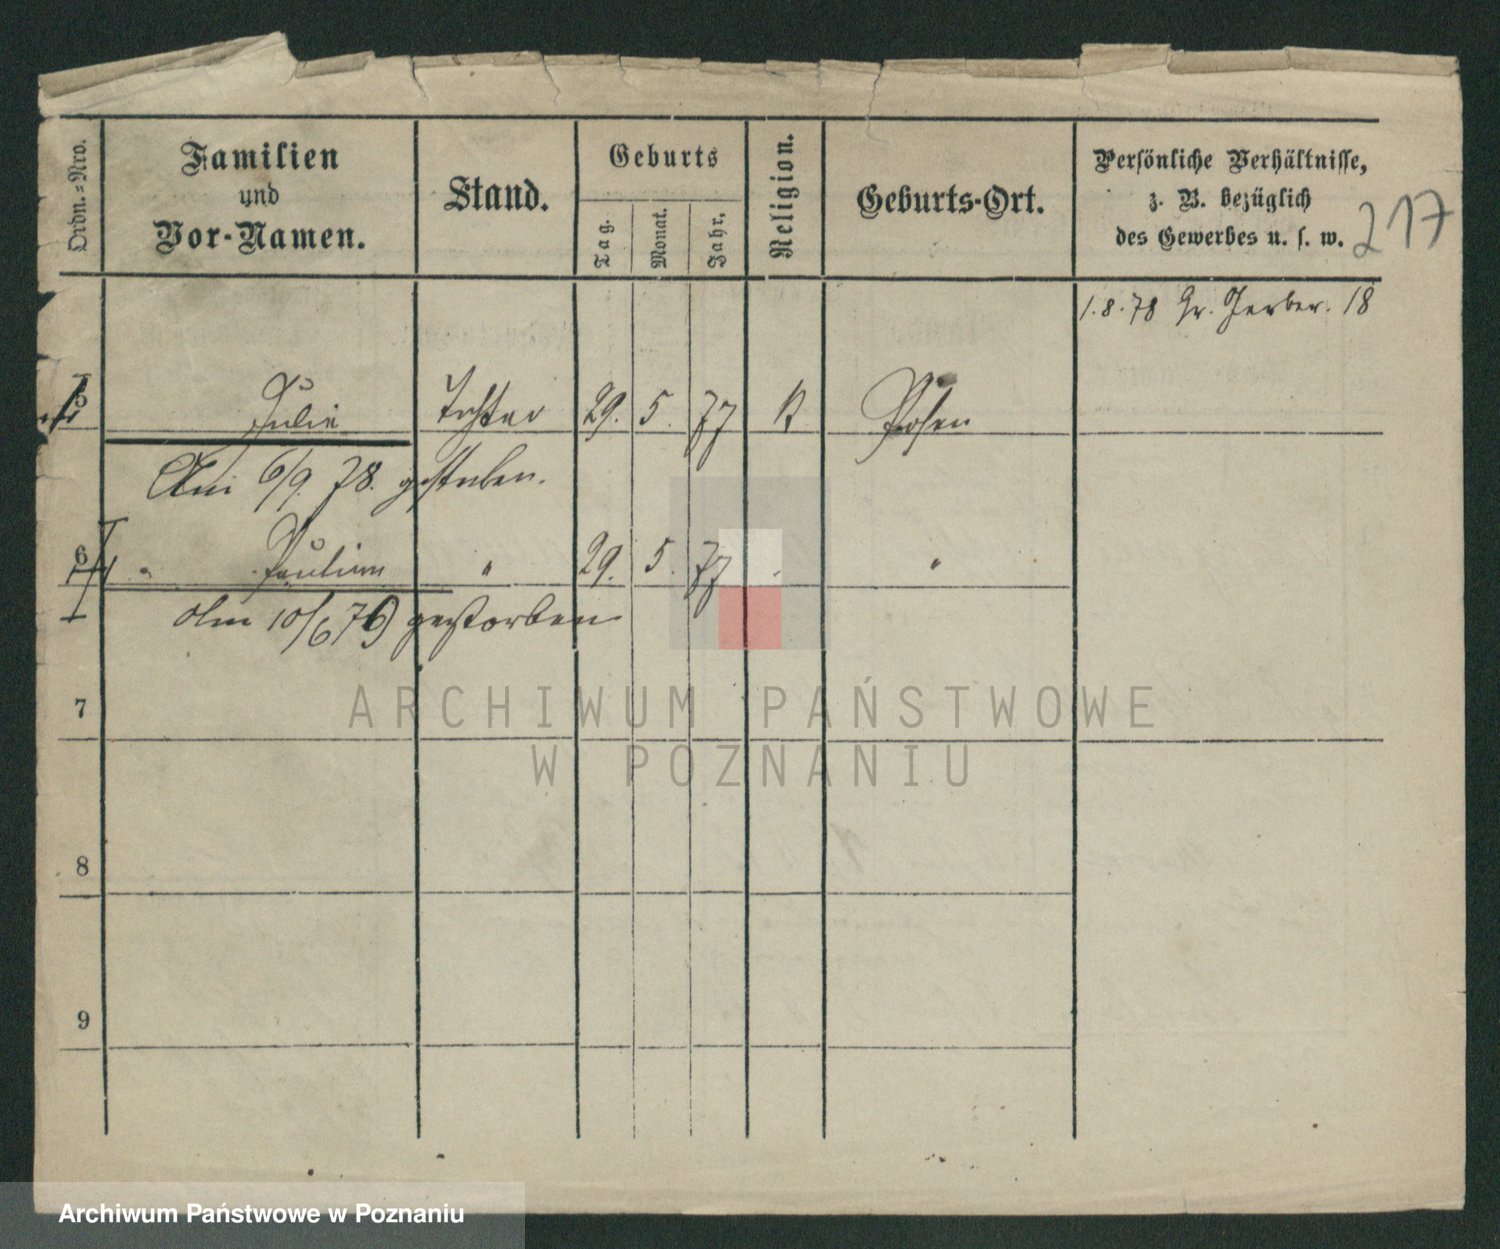 Ordn.=Nro.
Familien
und
Vor-Namen.
Stand.
Geburts
Tag.
Monat.
Jahr.
Religion.
Geburts-Ort.
Persönliche Verhältnisse,
z. B. bezüglich
des Gewerbes u. s. w.
217
1.8.78 Gr. Gerber. 18
5 Julie Tochter 29. 5. 77 K Posen
Am 6/9. 78. gestorben.
6 " Pauline " 29. 5. 77 "
Am 10/6 79 gestorben
7
8
9
ARCHIWUM PAŃSTWOWE
W POZNANIU
Archiwum Państwowe w Poznaniu